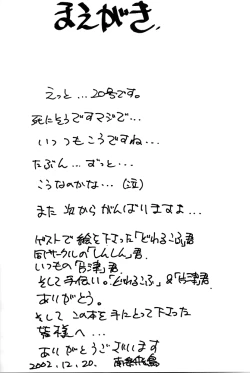 まえがき.
えっと…20号です。
死にそうですマジで…
いつもこうですね…
たぶん…ずっと…
こうなのかな…(泣)
また次からがんばりますよ…
ゲストで絵を下さった「どれみふ」君
同サークルの「しんしん」君.
いつもの「会津」君
そして手伝い。どれみふ」&「会津」君
ありがとう。
そしてこの本を手にとって下さった
皆様へ…
ありがとうございます
2002.12.20.